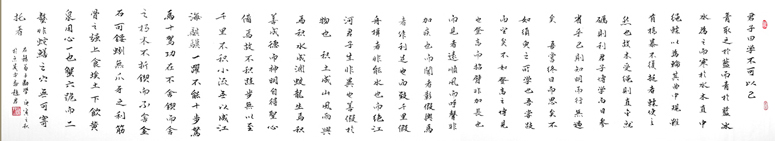 君子曰學不可以已
青取之於藍而青於藍冰
水為之而寒於水木直中
繩輮以為輪其曲中規雖
有槁暴不復挺者輮使之
然也故木受繩則直金就
礪則利君子博學而日參
省乎己則知明而行無過
矣 吾嘗終日而思矣不
如須臾之所學也吾嘗跂
而望矣不如登高之博見
也登高而招臂非加長也
而見者遠順風而呼聲非
加疾也而聞者彰假輿馬
者非利足也而致千里假
舟楫者非能水也而絕江
河君子生非異也善假於
物也 積土成山風雨興
焉積水成淵蛟龍生焉積
善成德而神明自得聖心
備焉故不積跬步無以至
千里不積小流無以成江
海騏驥一躍不能十步駑
馬十駕功在不舍鍥而舍
之朽木不折鍥而不舍金
石可鏤蚓無爪牙之利筋
骨之強上食埃土下飲黃
泉用心一也蟹六跪而二
螯非蛇鱔之穴無可寄
託者